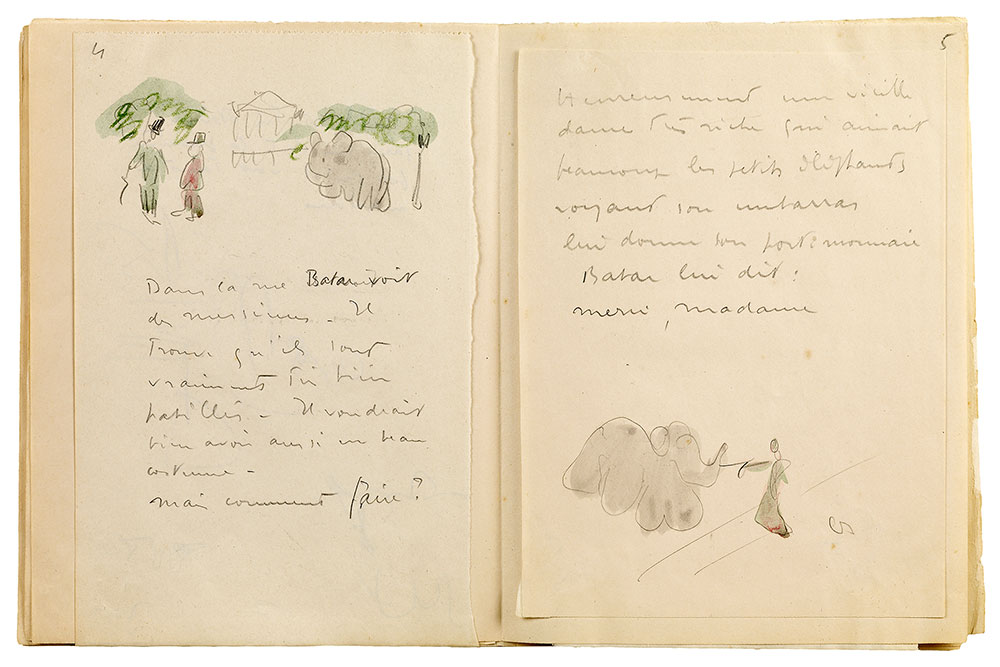 4
Dans la rue Babar voit
des messieurs – Il
trouve qu'ils sont
vraiment très bien
habillés – Il voudrait
bien avoir aussi un beau
costume –
mais comment faire ?
5
Heureusement une vieille
dame très riche qui aimait
beaucoup les petits éléphants
voyant son embarras
lui donne son porte monnaie
Babar lui dit :
merci, madame